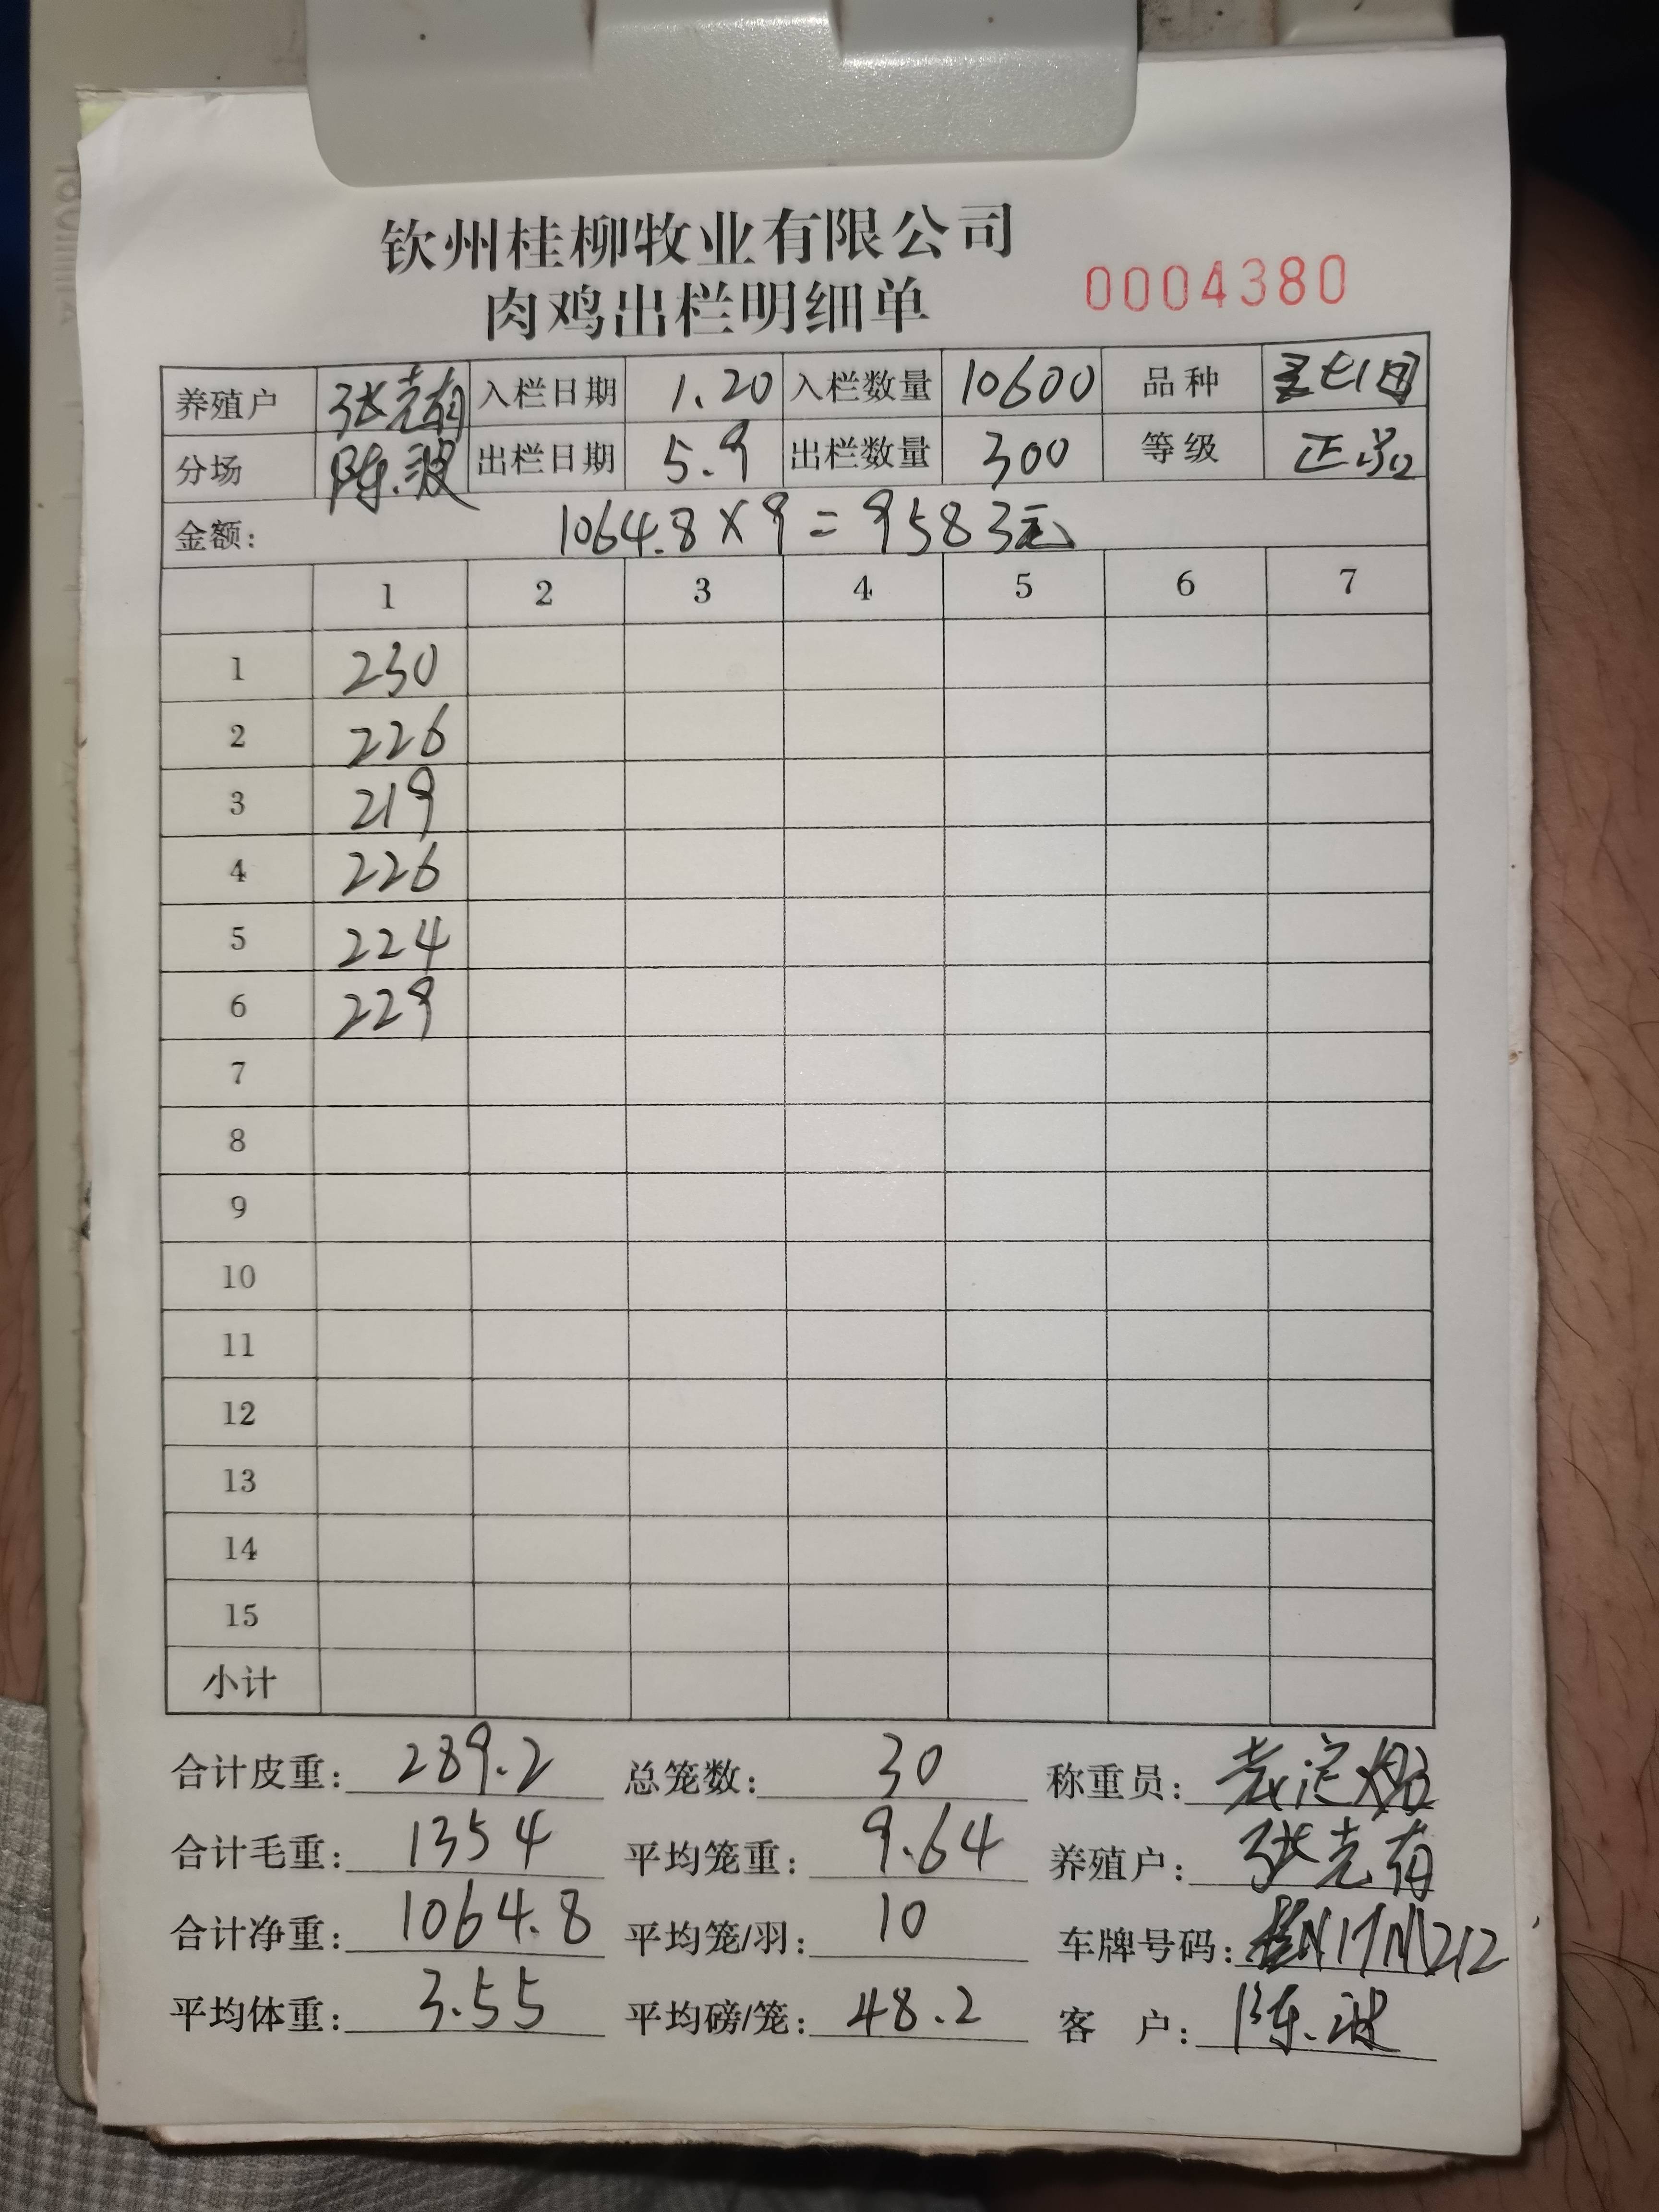 钦州桂柳牧业有限公司
肉鸡出栏明细单
0004380
养殖户 张克有 入栏日期 1.20 入栏数量 10600 品种
分场 陈波 出栏日期 5.9 出栏数量 300 等级 正品
金额: 1064.8×9=9583元
1 2 3 4 5 6 7
1 230
2 226
3 219
4 226
5 224
6 229
7
8
9
10
11
12
13
14
15
小计
合计皮重: 289.2 总笼数: 30 称重员:
合计毛重: 1354 平均笼重: 9.64 养殖户: 张克有
合计净重: 1064.8 平均笼/羽: 10 车牌号码:
平均体重: 3.55 平均磅/笼: 48.2 客 户: 陈波